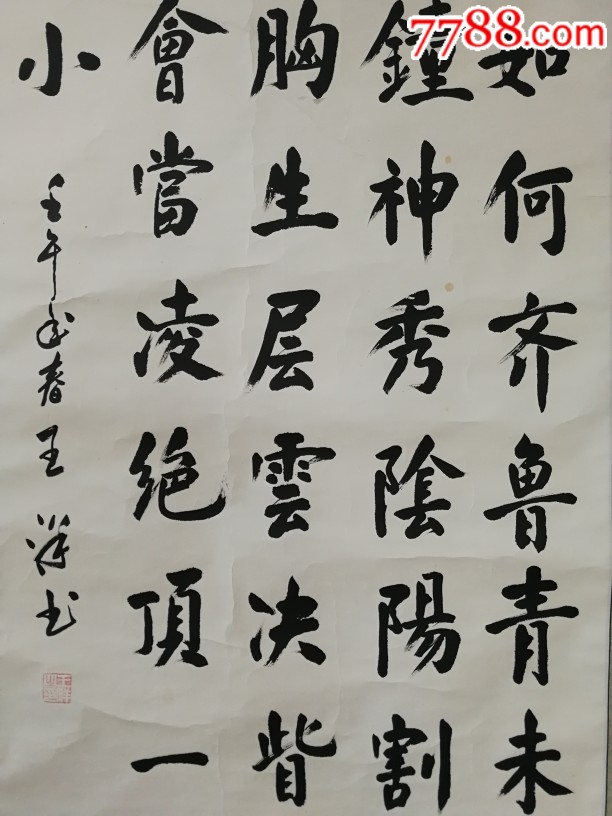 7788.com
如何齐鲁青未
鐘神秀陰陽割
胸生层雲决眥
會當凌絕頂一
小
壬午年春王祥书